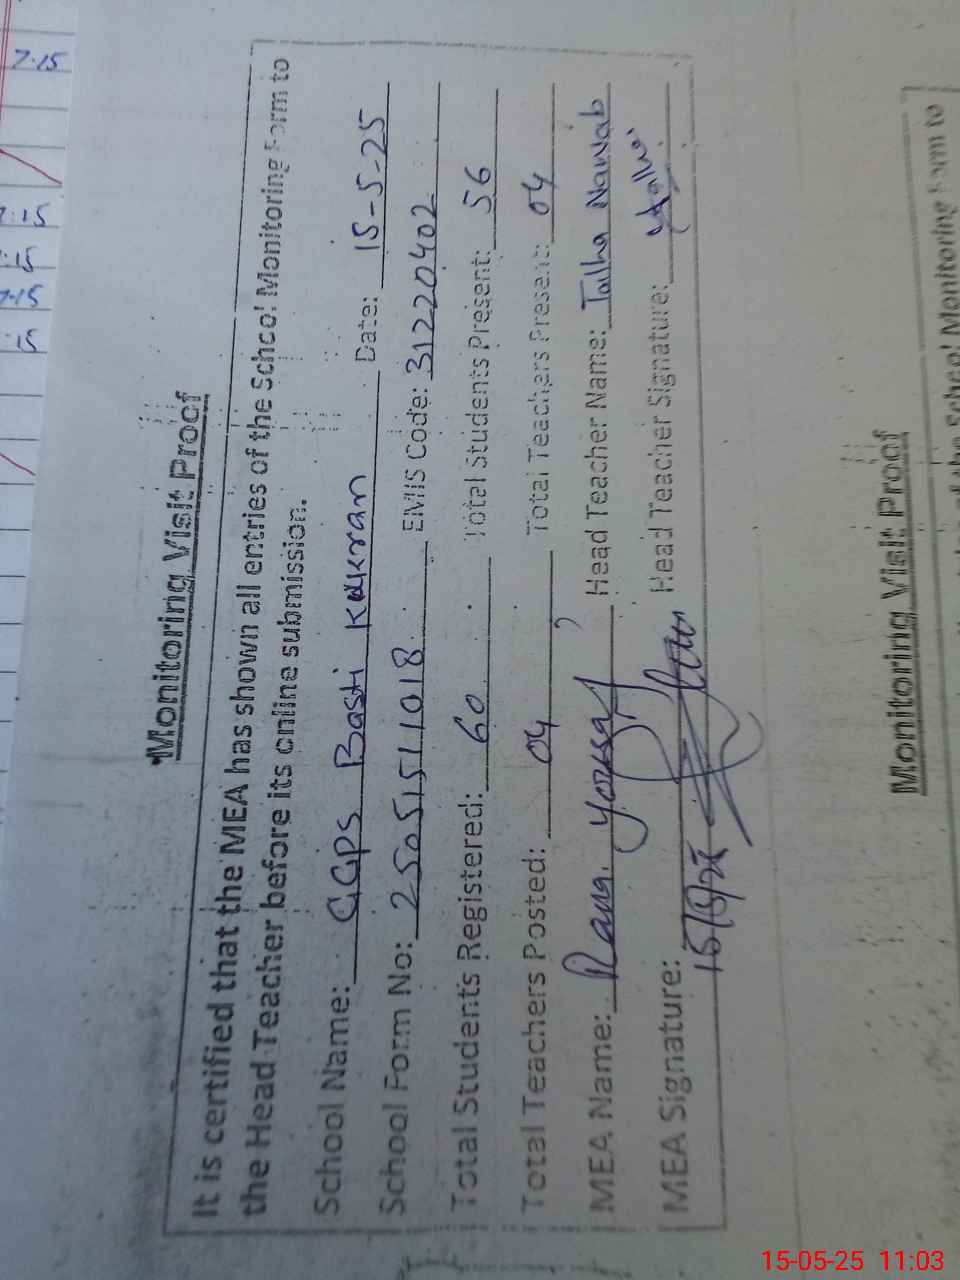 7.15
7:15
:15
7.15
15
Monitoring Visit Proof
It is certified that the MEA has shown all entries of the School Monitoring Form to
the Head Teacher before its online submission.
School Name: GGPS Basti Kakran Date: 15-5-25
School Form No: 25051511018 EMIS Code: 31220402
Total Students Registered: 60 Total Students Present: 56
Total Teachers Posted: 04 Total Teachers Present: 04
MEA Name: Rana yousaf Head Teacher Name: Talha Nawab
MEA Signature: Head Teacher Signature:
Monitoring Visit Proof
School Monitoring Form to
15-05-25 11:03